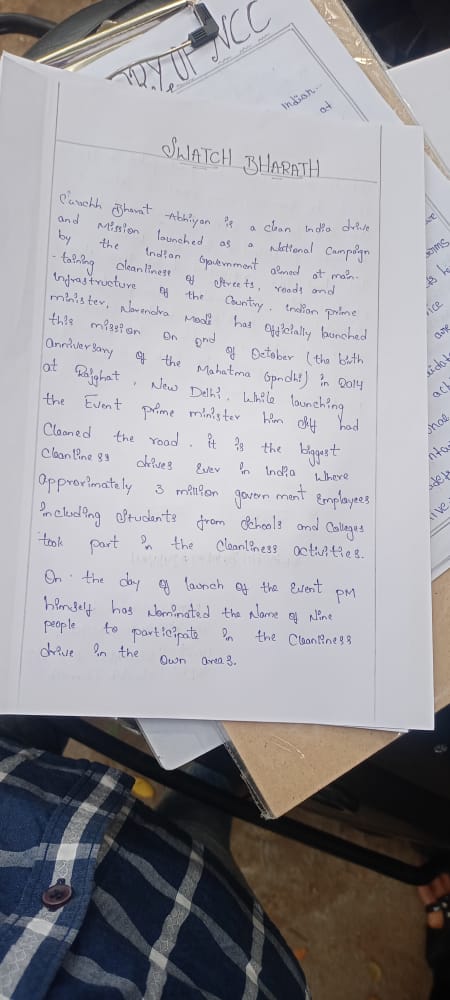 ORY OF NCC
Indian
at
SWATCH BHARATH
Swachh Bharat Abhiyan is a clean India drive
and Mission launched as a National Campaign
by the Indian Government aimed at main-
-taining cleanliness of streets, roads and
infrastructure of the Country. Indian prime
minister, Narendra Modi has officially launched
this mission on 2nd of October (the birth
anniversary of the Mahatma Gandhi) in 2014
at Rajghat, New Delhi. While launching
the Event prime minister him elf had
Cleaned the road. it is the biggest
Cleanliness drives Ever in India Where
Approximately 3 million government Employees
including Students from Schools and Colleges
took part in the Cleanliness activities.
On the day of launch of the Event PM
himself has Nominated the Name of Nine
people to participate in the Cleanliness
drive in the own areas.